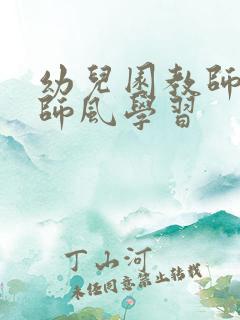 幼兒園教師
師風學習
丁山河
未經同意禁止轉載